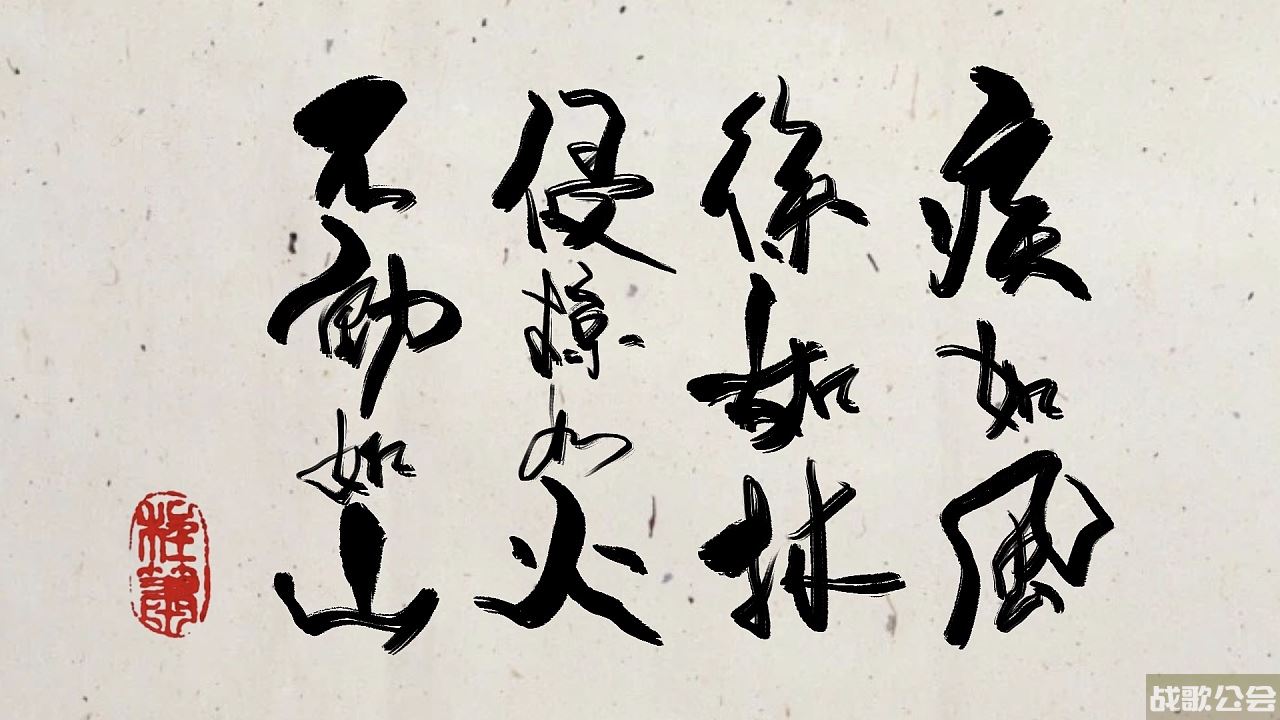 疾如風
徐如林
侵掠如火
不動如山
战歌公会